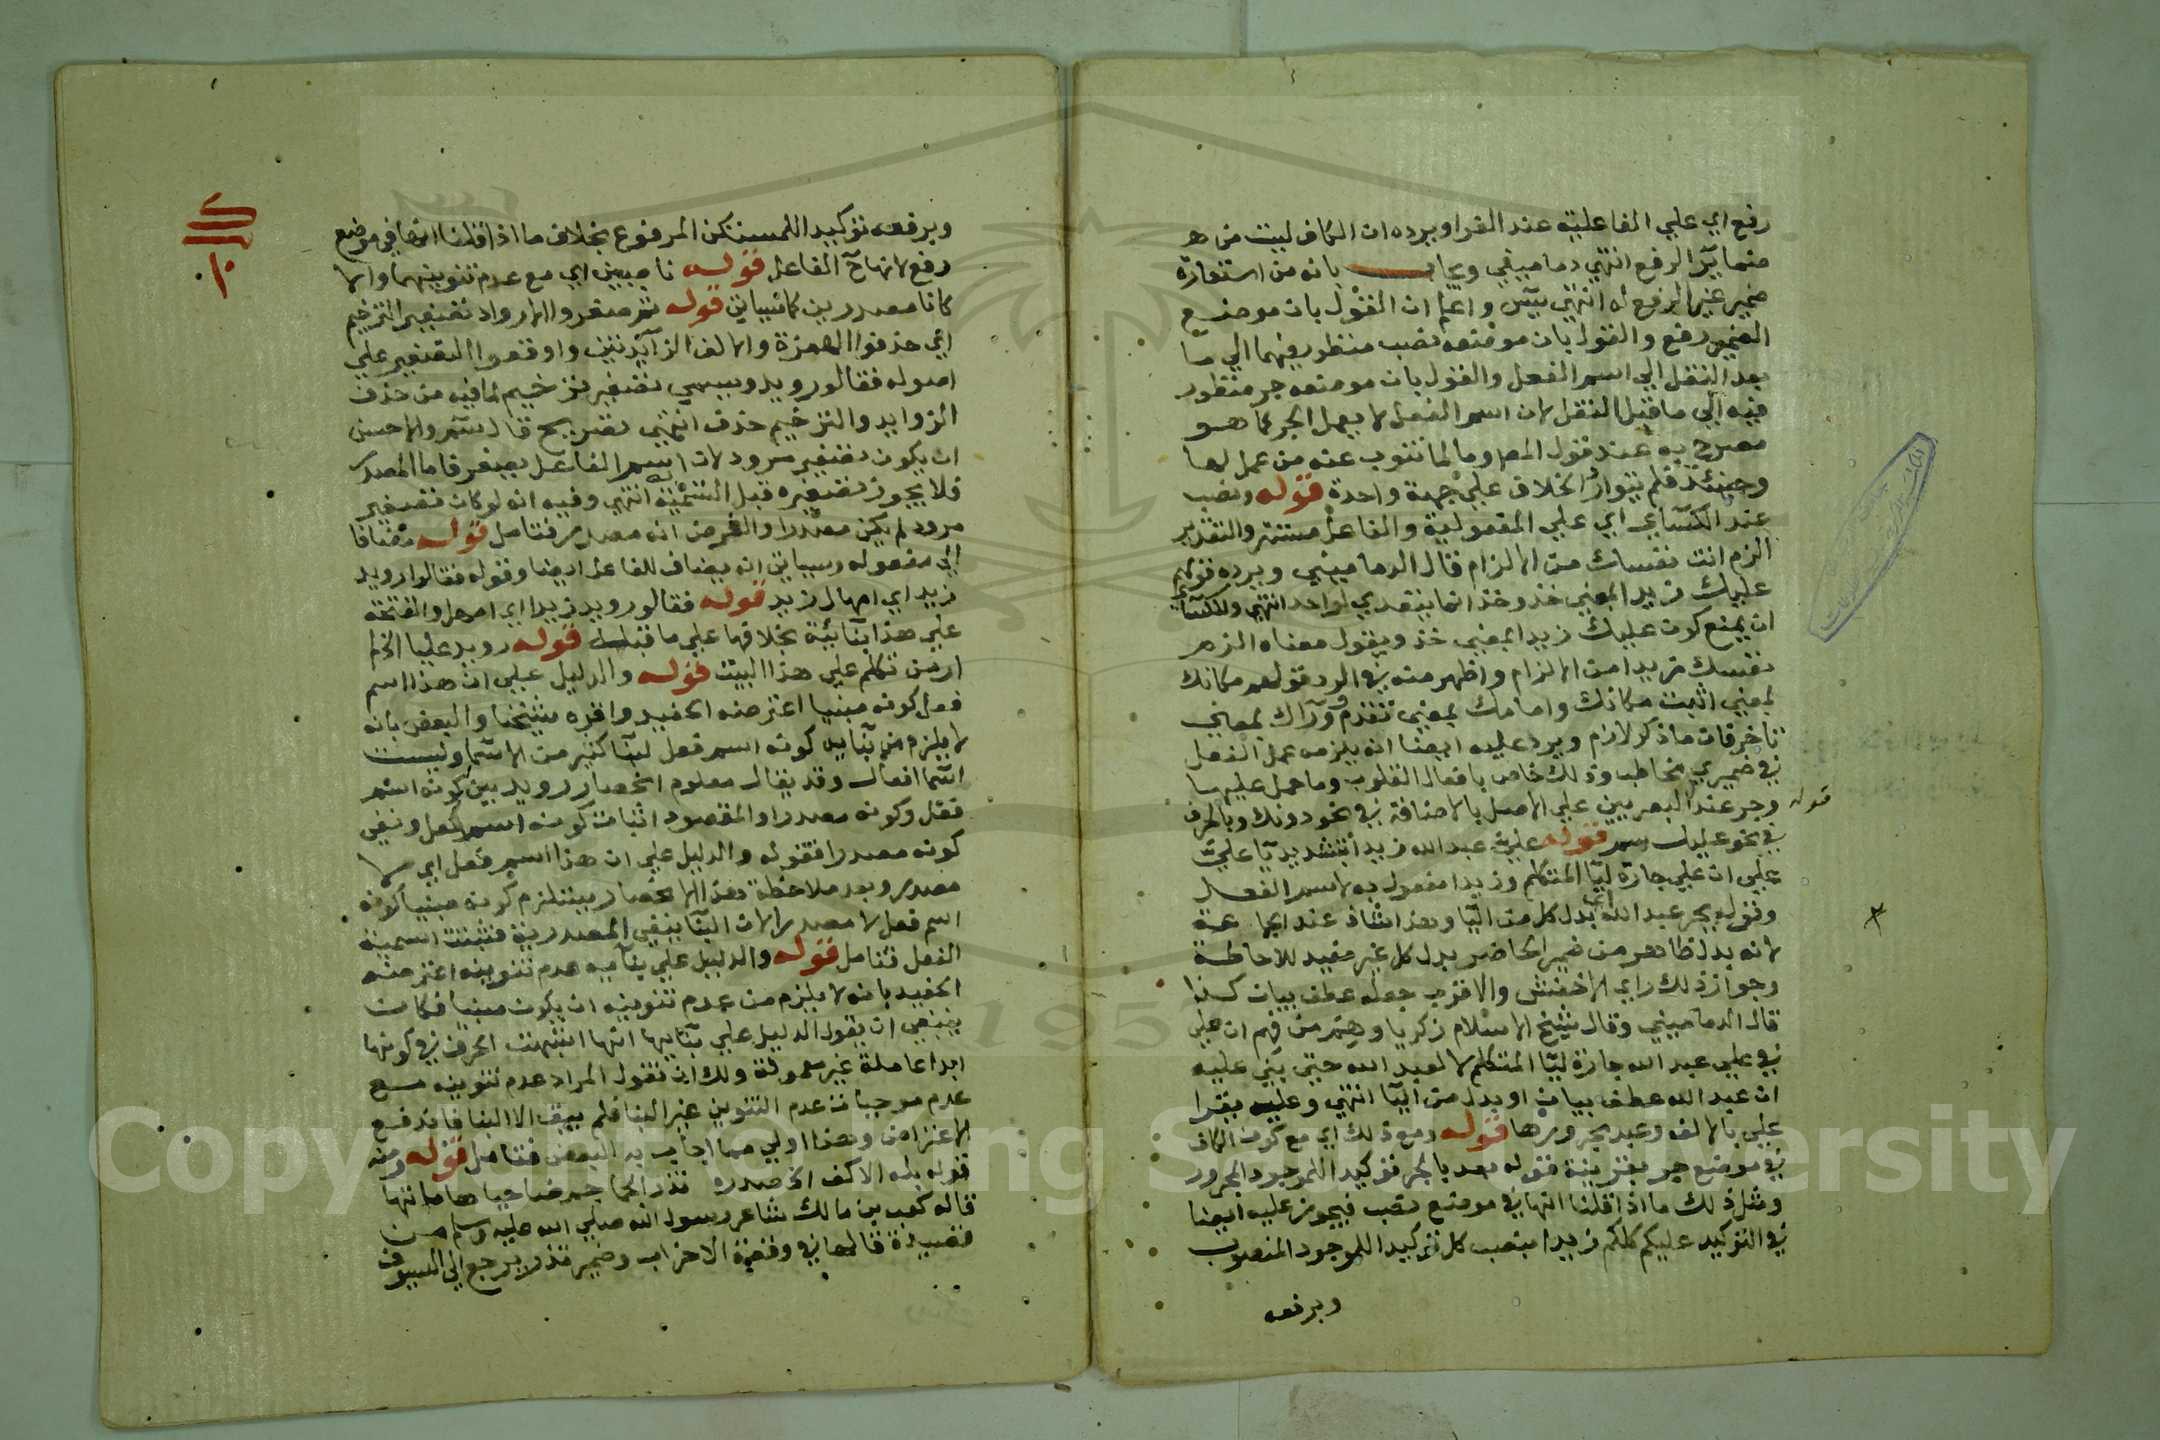 رفع اي علي الفاعلية عند الفرا ويرده ان الكاف ليست من
ضمايرالرفع انتهي دماميني ويجاب بانه من استعارة
ضمير غير الرفع له انتهي يس واعلم ان القول بان موضع
الضمير رفع والقول بان موضعه نصب منظور فيهما الي ما
بعد النقل الي اسم الفعل والقول بان موضعه جر منظور
فيه الي ما قبل النقل لان اسم الفعل لا يعمل الجر كما هو
مصرح به عند قول المص وما لما تنوب عنه من عمل لها
وحينئذ فلم يتوارد الخلاف علي جهة واحدة قوله ونصب
عند الكساي اي علي المفعولية والفاعل مستتر والتقدير
الزم انت نفسك من الالزام قال الدماميني ويرده قولهم
عليك زيدا بمعني خذ وخذ انما يتعدي لواحد انتهي وللكساي
ان يمنع كون عليك زيدا بمعني خذ ويقول معناه الزم
نفسك زيدا من الالزام واظهر منه في الرد قولهم مكانك
بمعني اثبت مكانك وامامك بمعني تقدم ووراك بمعني
تاخر فان ما ذكر لازم ويرد عليه ايضا انه يلزمه عمل الفعل
في ضميري مخاطب وذلك خاص بافعال القلوب وما حمل عليها
قوله وجر عند البصريين علي الاصل بالاضافة في نحو دونك وبالحرف
في نحو عليك سم قوله علي عبد الله زيدا بتشديد يا علي
علي ان علي جارة ليا المتكلم وزيدا مفعول به لاسم الفعل
وقوله بجر عبد الله اي بدل كل من اليا وهذا شاذ عند
لانه بدل ظاهر من ضمير الحاضر بدل كل غير مفيد للاحاطة
وجواز ذلك راي الاخفش والاقرب جعله عطف بيان كذا
قال الدماميني وقال شيخ الاسلام زكريا وهم من فهم ان علي
في علي عبد الله جارة ليا المتكلم لا لعبد الله حتي بني عليه
ان عبد الله عطف بيان او بدل من اليا انتهي وعليه يقرا
علي بالالف وعبد مجرورها قوله ومع ذلك اي مع كون الكاف
في موضع جر بقرينة قوله بعد بالجر توكيدا للموجود المجرور
ومثل ذلك ما اذا قلنا انها في موضع نصب فيجوز عليه ايضا
في التوكيد عليكم كلكم زيدا بنصب كل توكيدا للموجود المنصوب
وبرفعه
وبرفعه توكيدا للمستكن المرفوع بخلاف ما اذا قلنا انها في موضع
رفع لانهاح الفاعل قوله ناصبين اي مع عدم تنوينهما والا
كانا مصدرين كما سياتي قوله ثم صغروا الارواد تصغير الترخيم
اي حذفوا الهمزة والالف الزايدتين واوقعوا التصغير علي
اصوله فقالوا رويد وسمي تصغير ترخيم لما فيه من حذف
الزوايد والترخيم حذف انتهي تصريح قال سم والاحسن
ان يكون تصغير مرود لان اسم الفاعل يصغر فاما المصدر
فلا يجوز تصغيره قبل التسمية انتهي وفيه انه لو كان تصغير
مرود لم يكن مصدرا والفرض انه مصدر فتامل قوله مضافا
الي مفعوله وسياتي انه يضاف للفاعل ايضا وقوله فقالوا رويد
زيد اي امهال زيد قوله فقالوا رويد زيدا اي امهل والفتحة
علي هذا بنائية بخلافها علي ما قبله قوله رويد عليا الخ
ار من تكلم علي هذا البيت قوله والدليل علي ان هذا اسم
فعل كونه مبنيا اعترضه الحفيد واقره شيخنا والبعض بانه
لا يلزم من بنايه كونه اسم فعل لبنا كثير من الاسما وليست
اسما افعال وقد يقال معلوم انحصار رويد بين كونه اسم
فعل وكونه مصدرا والمقصود اثبات كونه اسم فعل ونفي
كونه مصدرا فقوله والدليل علي ان هذا اسم فعل اي لا
مصدر وبعد ملاحظة هذا الانحصار يستلزم كونه مبنيا كونه
اسم فعل لا مصدرا لان البنا ينفي المصدرية فثبتت اسمية
الفعل فتامل قوله والدليل علي بنايه عدم تنوينه اعترضه
الحفيد بانه لا يلزم من عدم تنوينه ان يكون مبنيا فكان
ينبغي ان يقول الدليل علي بنايها انها اشبهت الحرف في كونها
ابدا عاملة غير معمولة ولك ان تقول المراد عدم تنوينه مع
عدم موجبات عدم التنوين غير البنا فلم يبق الا البنا فاندفع
الاعتراض وهذا اولي مما اجاب به البعض فتامل قوله ومنه
قوله بله الاكف الخ صدره تذر الجماجم ضاحيا هاماتها
قاله كعب بن مالك شاعر رسول الله صلي الله عليه وسلم من
قصيدة قالها في وقعة الاحزاب وضمير تذر يرجع الي السيوف